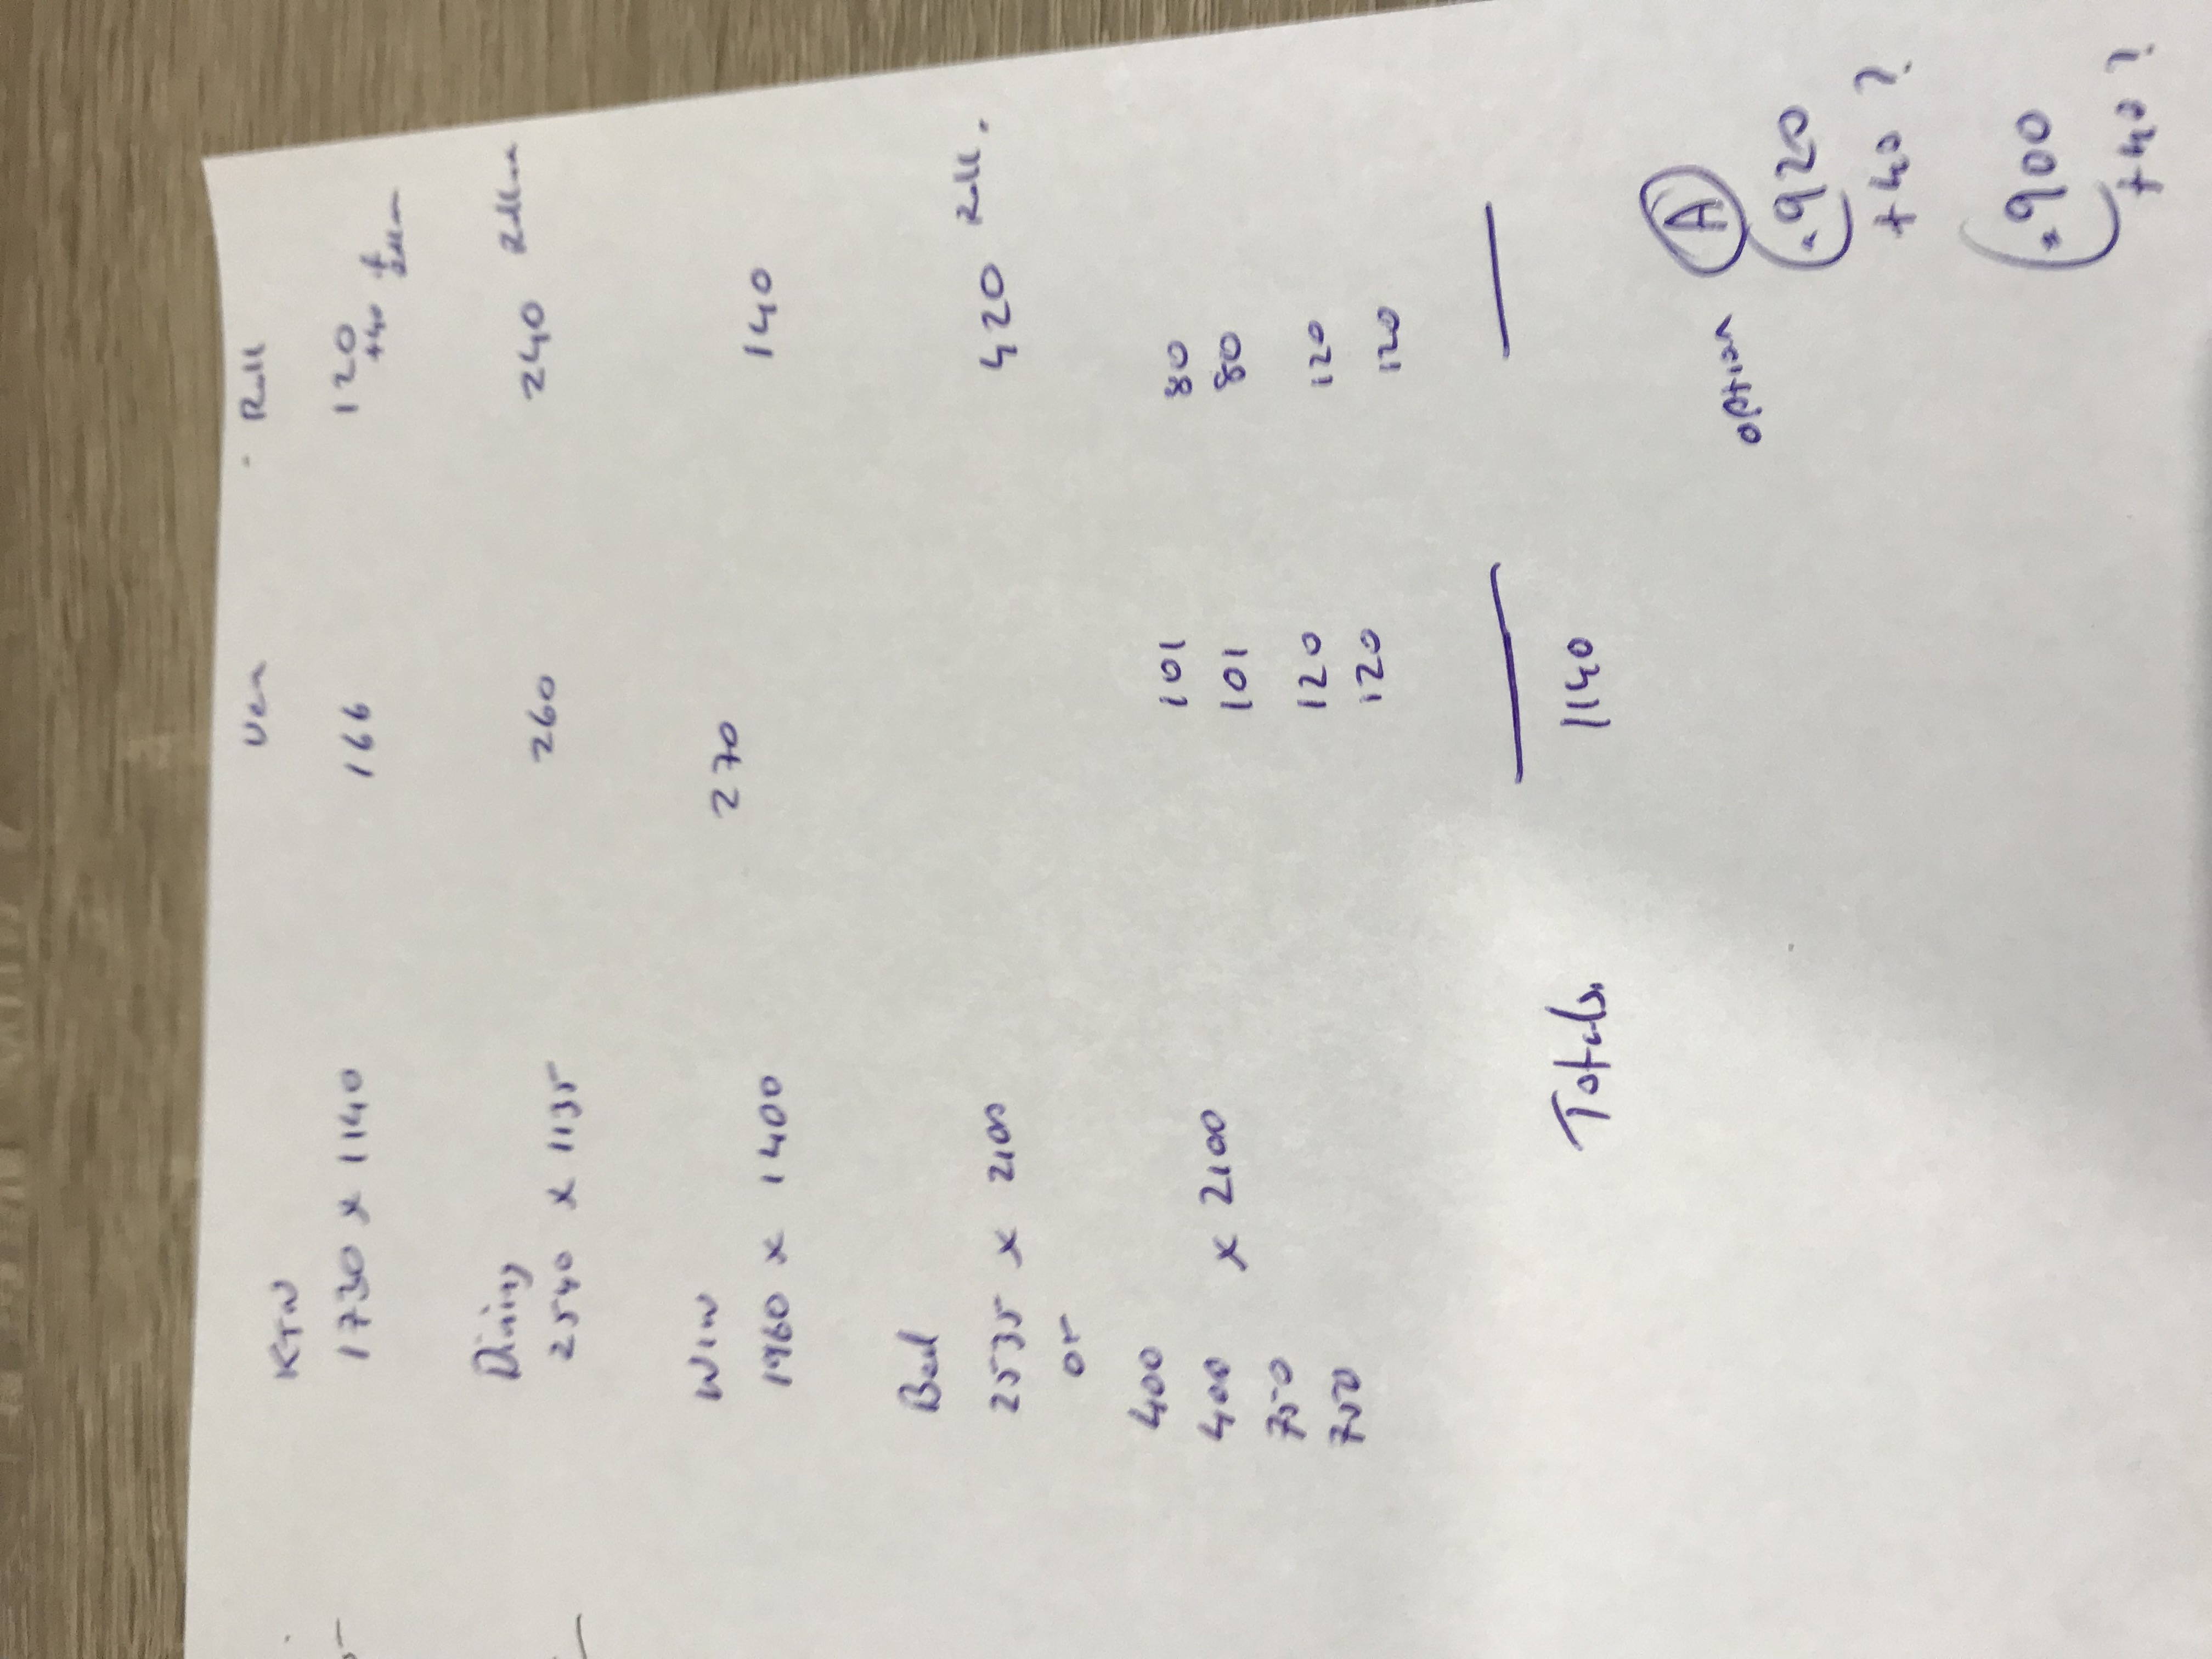 Ven Roll
KTN
1730 x 1140 166 120
+40
Dining
2540 x 1135 260 240
Win 270
1960 x 1400 140
Bed
2535 x 2100 420 Roll.
or
400 101 80
400 x 2100 101 80
750 120 120
750 120 120
Totals 1140
option A
.920
+40?
.900
+40?